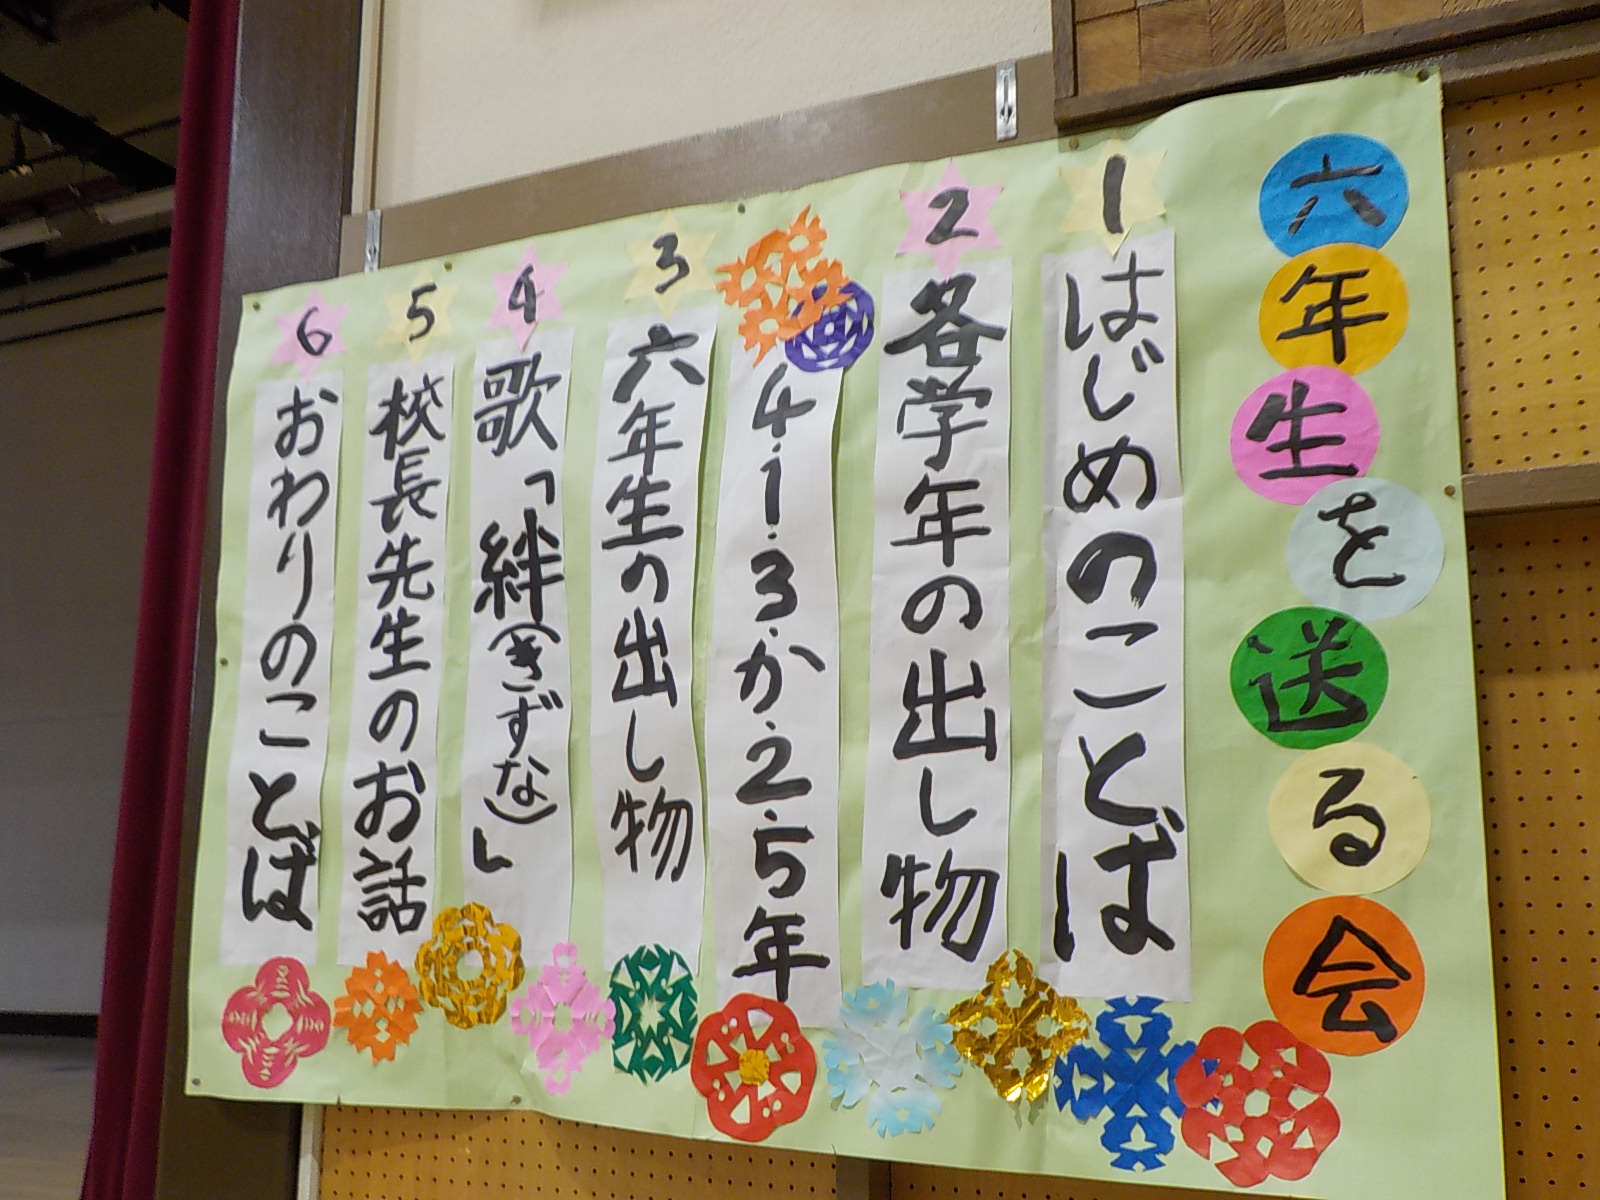 六年生を送る会
1 はじめのことば
2 各学年の出し物
4・1・3・か・2・5年
3 六年生の出し物
4 歌「絆(きずな)」
5 校長先生のお話
6 おわりのことば